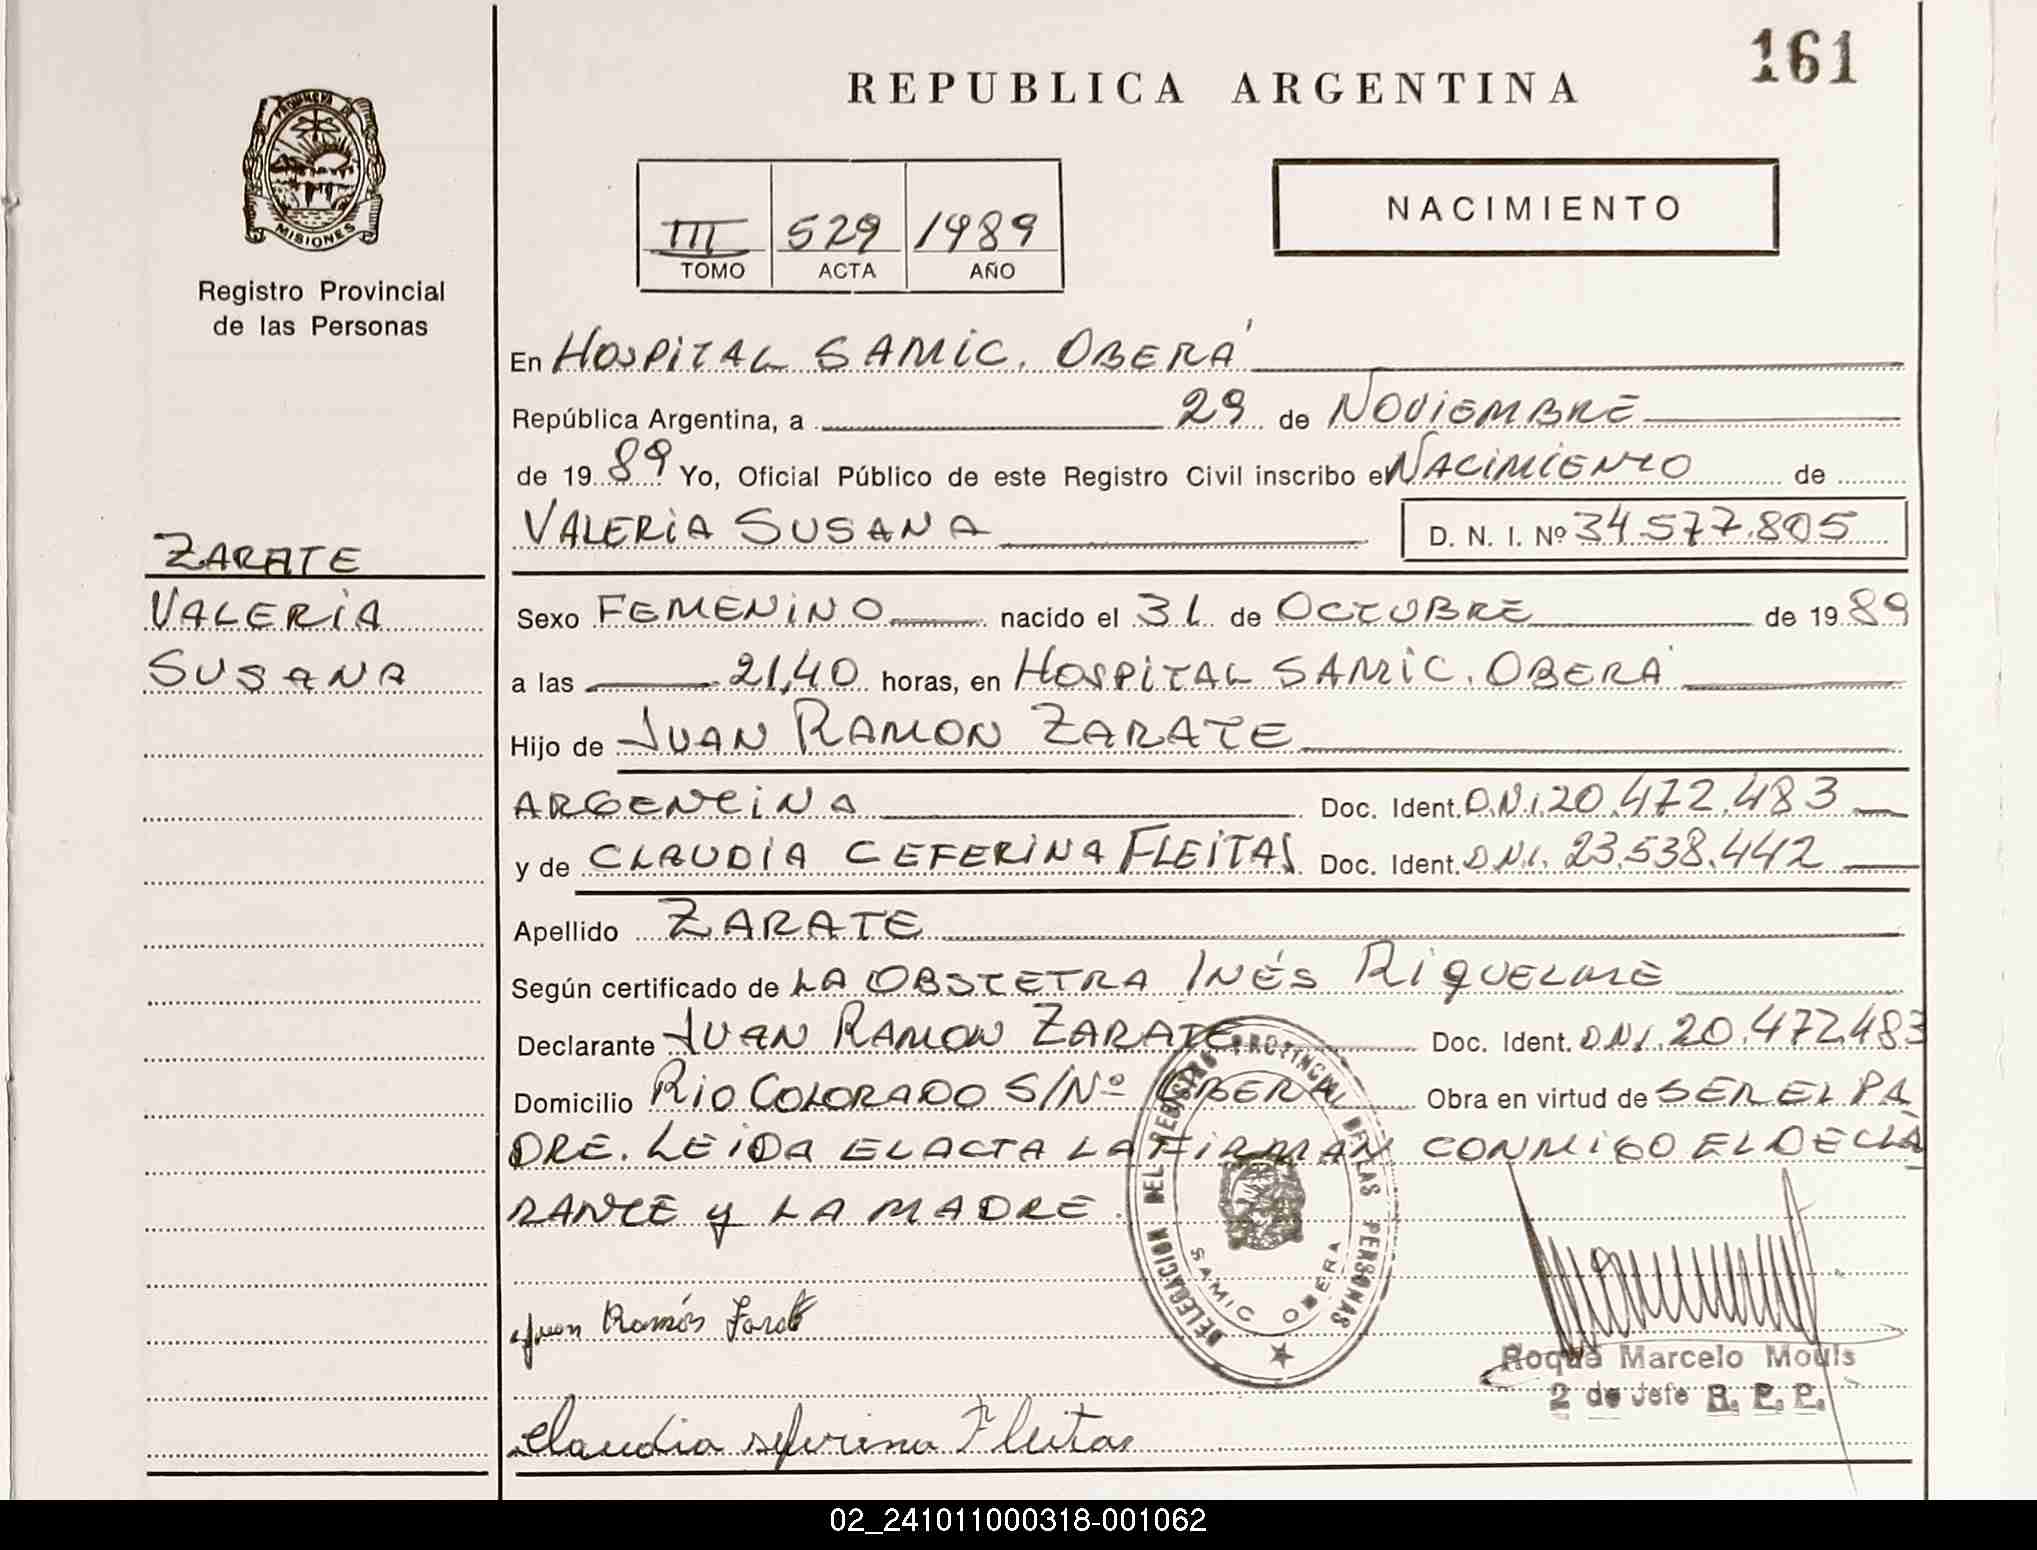 161
REPUBLICA ARGENTINA
PROVINCIA DE
MISIONES
Registro Provincial
de las Personas
III 529 1989
TOMO ACTA AÑO
NACIMIENTO
En HOSPITAL SAMIC. OBERÁ
República Argentina, a 29 de NOVIEMBRE
de 1989 Yo, Oficial Público de este Registro Civil inscribo el NACIMIENTO de
VALERIA SUSANA D. N. I. Nº 34.577.805
ZARATE
VALERIA
SUSANA
Sexo FEMENINO nacido el 31 de OCTUBRE de 1989
a las 21,40 horas, en HOSPITAL SAMIC. OBERÁ
Hijo de JUAN RAMON ZARATE
ARGENTINA Doc. Ident. D.N.I. 20.472.483
y de CLAUDIA CEFERINA FLEITAS Doc. Ident. D.N.I. 23.538.442
Apellido ZARATE
Según certificado de LA OBSTETRA INÉS RIQUELME
Declarante JUAN RAMON ZARATE Doc. Ident. D.N.I. 20.472.483
Domicilio RIO COLORADO S/Nº OBERA Obra en virtud de SER EL PA
DRE. LEIDA EL ACTA LA FIRMAN CONMIGO EL DECLA
RANTE Y LA MADRE.
DELEGACION DEL REGISTRO PROVINCIAL DE LAS PERSONAS
SAMIC OBERA
Juan Ramón Zarate
Roque Marcelo Mouls
2 do Jefe R. P. P.
Claudia seferina Fleitas
02_241011000318-001062